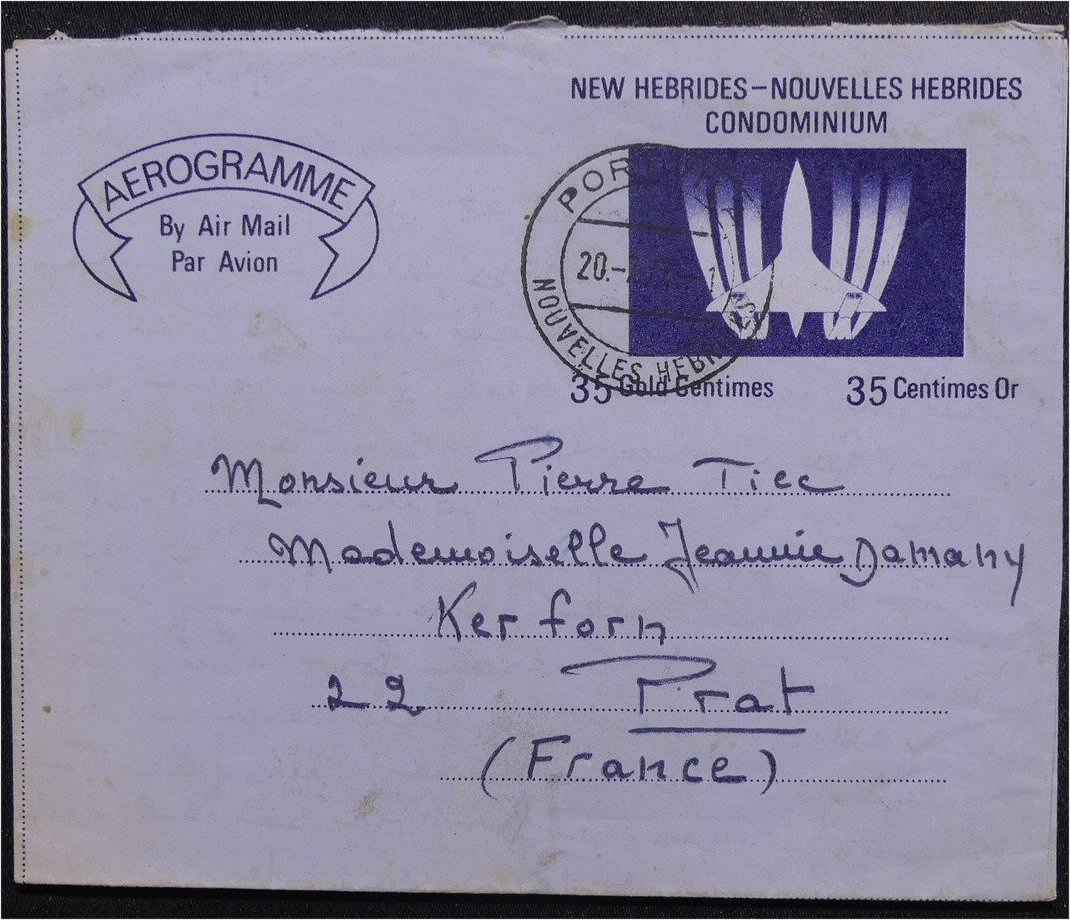 NEW HEBRIDES–NOUVELLES HEBRIDES
CONDOMINIUM
AEROGRAMME
By Air Mail
Par Avion
20.
NOUVELLES HEBRIDES
35 Gold Centimes
35 Centimes Or
Monsieur Pierre Tiec
Mademoiselle Jeannie Damany
Ker forn
22 Prat
(France)